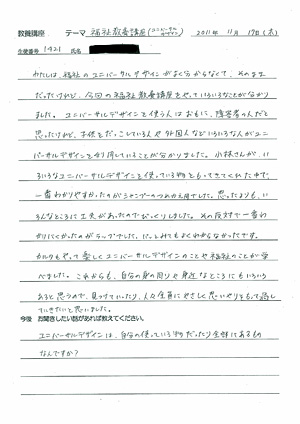 教養講座 テーマ 福祉教養講座(ユニバーサルデザイン) 2011年 11月 17日(木)
生徒番号 1421 氏名
わたしは、福祉のユニバーサルデザインがよく分からなくて、そのまま
だったけれど、今回の福祉教養講座をやっていろいろなことが分かり
ました。ユニバーサルデザインを使う人はおもに、障害者の人だと
思ったけれど、子供をだっこしている人や外国人などいろいろな人がユニ
バーサルデザインを利用していることが分かりました。小林さんが、い
ろいろなユニバーサルデザインを使っている物をもってきてくれた中で、
一番わかりやすかったのがシャンプーのつめかえ用でした。思ったよりも、い
ろんなところに工夫があったのでびっくりしました。その反対で一番わ
かりにくかったのがラップでした。パッとみてもよくわからなかったです。
カルタもやって楽しくユニバーサルデザインのことや福祉のことが学
べました。これからも、自分の身の周りや身近なところにもいろいろ
あると思うので、見つけていったり、人々全員にやさしく思いやりをもって過し
ていきたいと思いました。
今後 お聞きしたい話があれば教えてください。
ユニバーサルデザインは、自分の使っている物だったり全部にあるもの
なんですか?